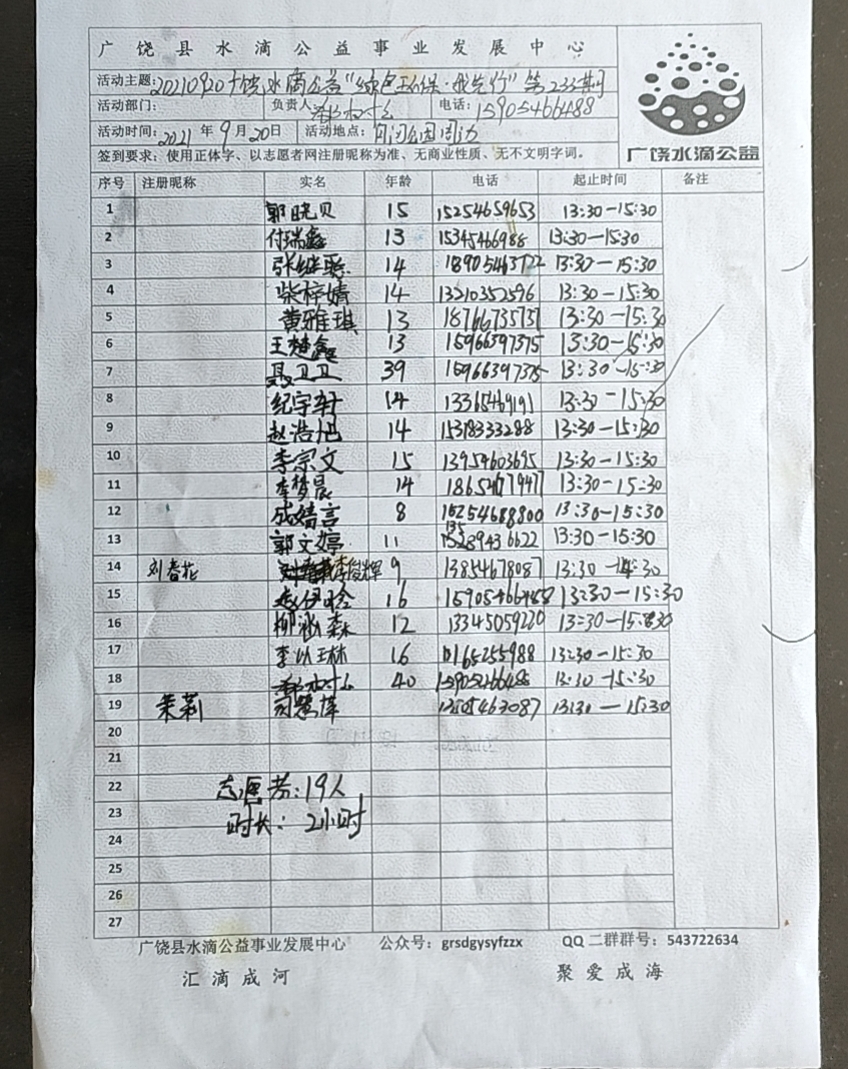 广饶县水滴公益事业发展中心
活动主题:20210920广饶水滴公益"绿色环保·我先行"第233期
活动部门: 负责人 电话:15905466488
活动时间:2021年9月20日 活动地点:
签到要求:使用正体字、以志愿者网注册昵称为准、无商业性质、无不文明字词。
广饶水滴公益
序号 注册昵称 实名 年龄 电话 起止时间 备注
1 郭晓贝 15 15254659653 13:30-15:30
2 付瑞鑫 13 15345466988 13:30-15:30
3 14 18905463722 13:30-15:30
4 柴梓婧 14 13210352596 13:30-15:30
5 黄雅琪 13 18766735737 13:30-15:30
6 王楚鑫 13 15966397375 13:30-15:30
7 聂卫卫 39 15966397375 13:30-15:30
8 纪宇轩 14 13:30-15:30
9 赵浩旭 14 15318333288 13:30-15:30
10 李宗文 15 13954603695 13:30-15:30
11 李梦晨 14 13:30-15:30
12 成婧言 8 15254688800 13:30-15:30
13 郭文婷 11 13:30-15:30
14 刘春花 李俊辉 9 13854678087 13:30
15 16 13:30-15:30
16 12 13345059220 13:30-15:30
17 16 13:30-15:30
18 40 13:30-15:30
19 茉莉 13:30-15:30
20
21
22 志愿者:19人
23 时长:2小时
24
25
26
27
广饶县水滴公益事业发展中心 公众号:grsdgysyfzzx QQ二群群号:543722634
汇滴成河 聚爱成海